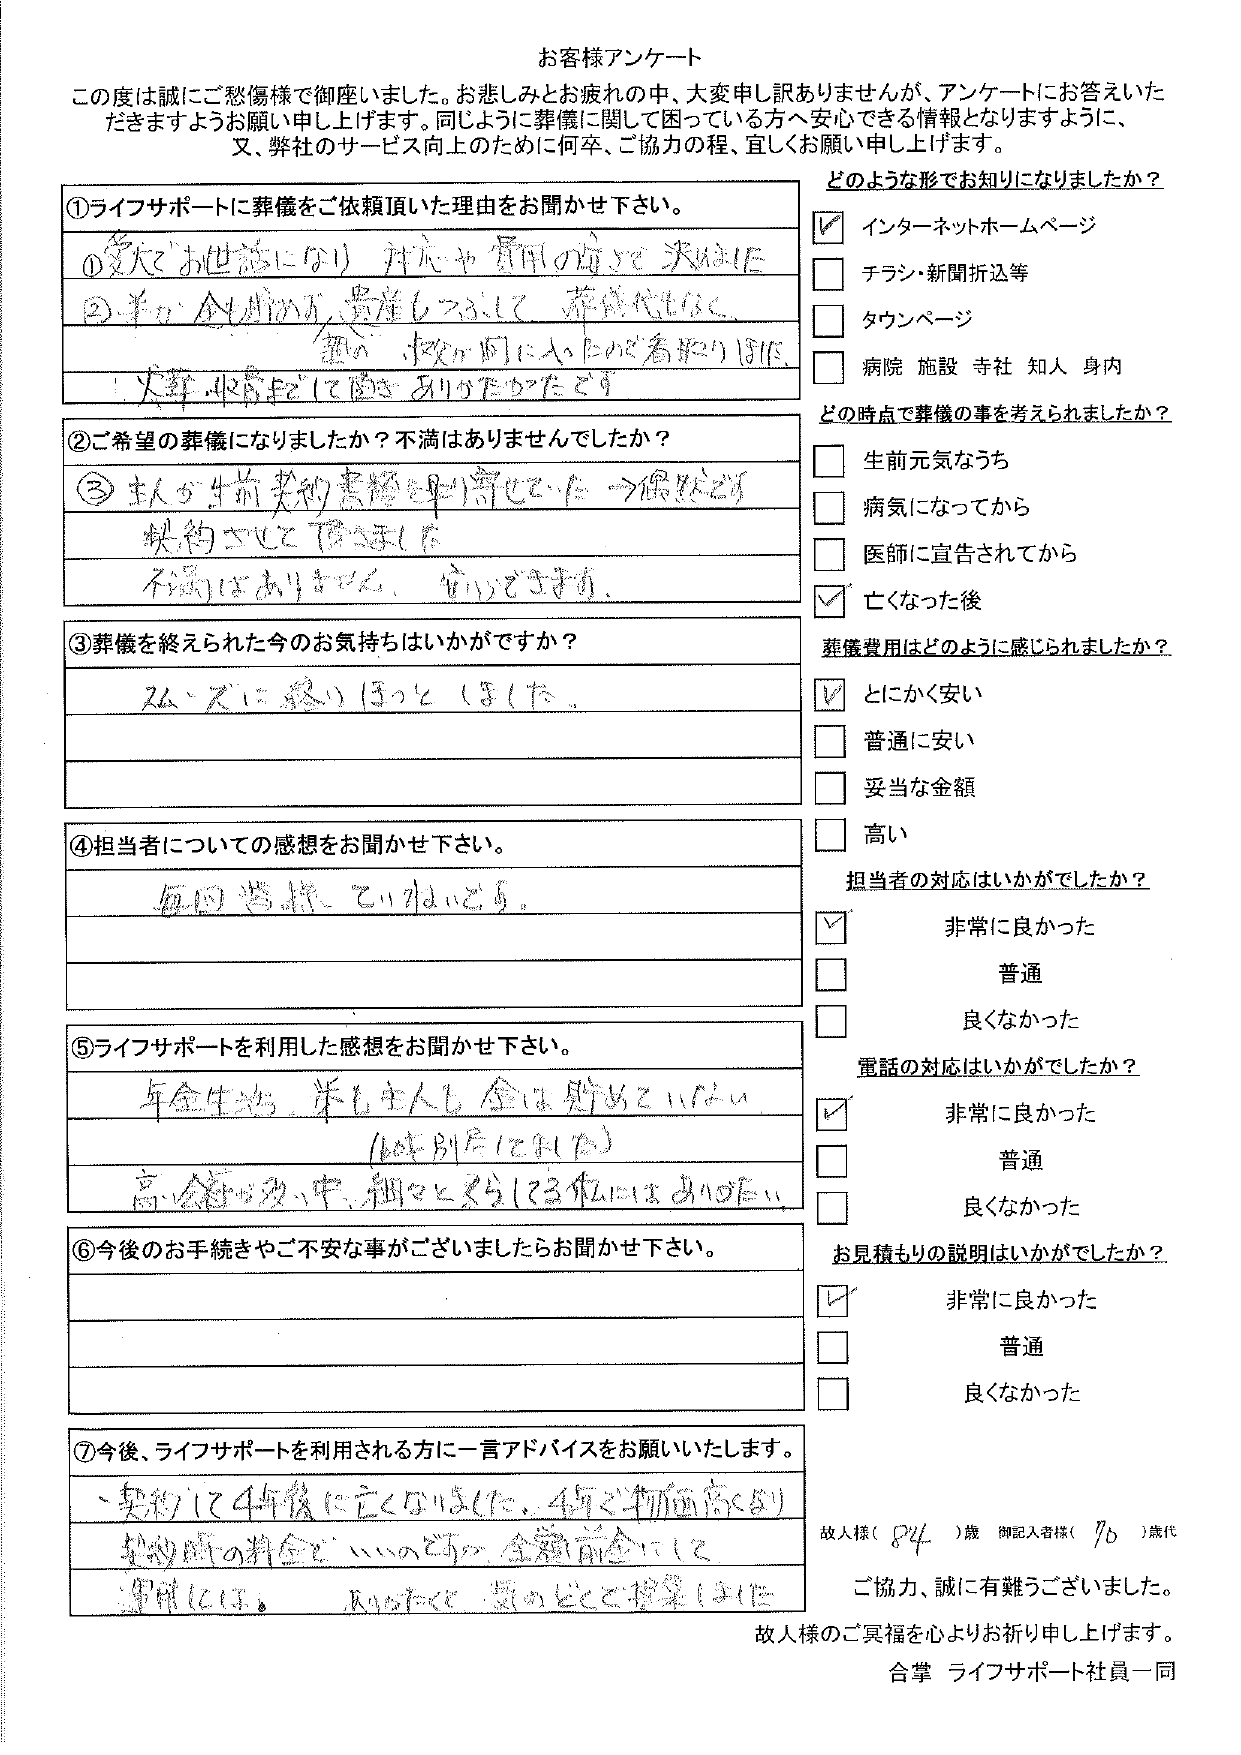 お客様アンケート
この度は誠にご愁傷様で御座いました。お悲しみとお疲れの中、大変申し訳ありませんが、アンケートにお答えいた
だきますようお願い申し上げます。同じように葬儀に関して困っている方へ安心できる情報となりますように、
又、弊社のサービス向上のために何卒、ご協力の程、宜しくお願い申し上げます。
①ライフサポートに葬儀をご依頼頂いた理由をお聞かせ下さい。
① でお世話になり 対応や費用の安さで決めました
② 金も貯めず、資産もつぶして 葬儀代もなく、
間に入ったので看取りました
火葬、収骨までして頂き ありがたかったです
②ご希望の葬儀になりましたか？不満はありませんでしたか？
③ 主人が生前契約書類を取り寄せていた →偶然です
契約させて頂きました
不満はありません、 安心できます。
③葬儀を終えられた今のお気持ちはいかがですか？
スムーズに終りほっと しました。
④担当者についての感想をお聞かせ下さい。
毎回 皆様、ていねいです。
⑤ライフサポートを利用した感想をお聞かせ下さい。
年金生活、弟も主人も 金は貯めていない
別居してました)
高い会社が多い中、細々とくらしてる私にはありがたい。
⑥今後のお手続きやご不安な事がございましたらお聞かせ下さい。
⑦今後、ライフサポートを利用される方に一言アドバイスをお願いいたします。
、契約して4年後に亡くなりました。4年で物価高くなり
契約時の料金で いいのですが 全額前金にして
ありがたくて 気のどくで 提案しました
どのような形でお知りになりましたか？
インターネットホームページ
チラシ・新聞折込等
タウンページ
病院 施設 寺社 知人 身内
どの時点で葬儀の事を考えられましたか？
生前元気なうち
病気になってから
医師に宣告されてから
亡くなった後
葬儀費用はどのように感じられましたか？
とにかく安い
普通に安い
妥当な金額
高い
担当者の対応はいかがでしたか？
非常に良かった
普通
良くなかった
電話の対応はいかがでしたか？
非常に良かった
普通
良くなかった
お見積もりの説明はいかがでしたか？
非常に良かった
普通
良くなかった
故人様( 84 )歳 御記入者様( 70 )歳代
ご協力、誠に有難うございました。
故人様のご冥福を心よりお祈り申し上げます。
合掌 ライフサポート社員一同